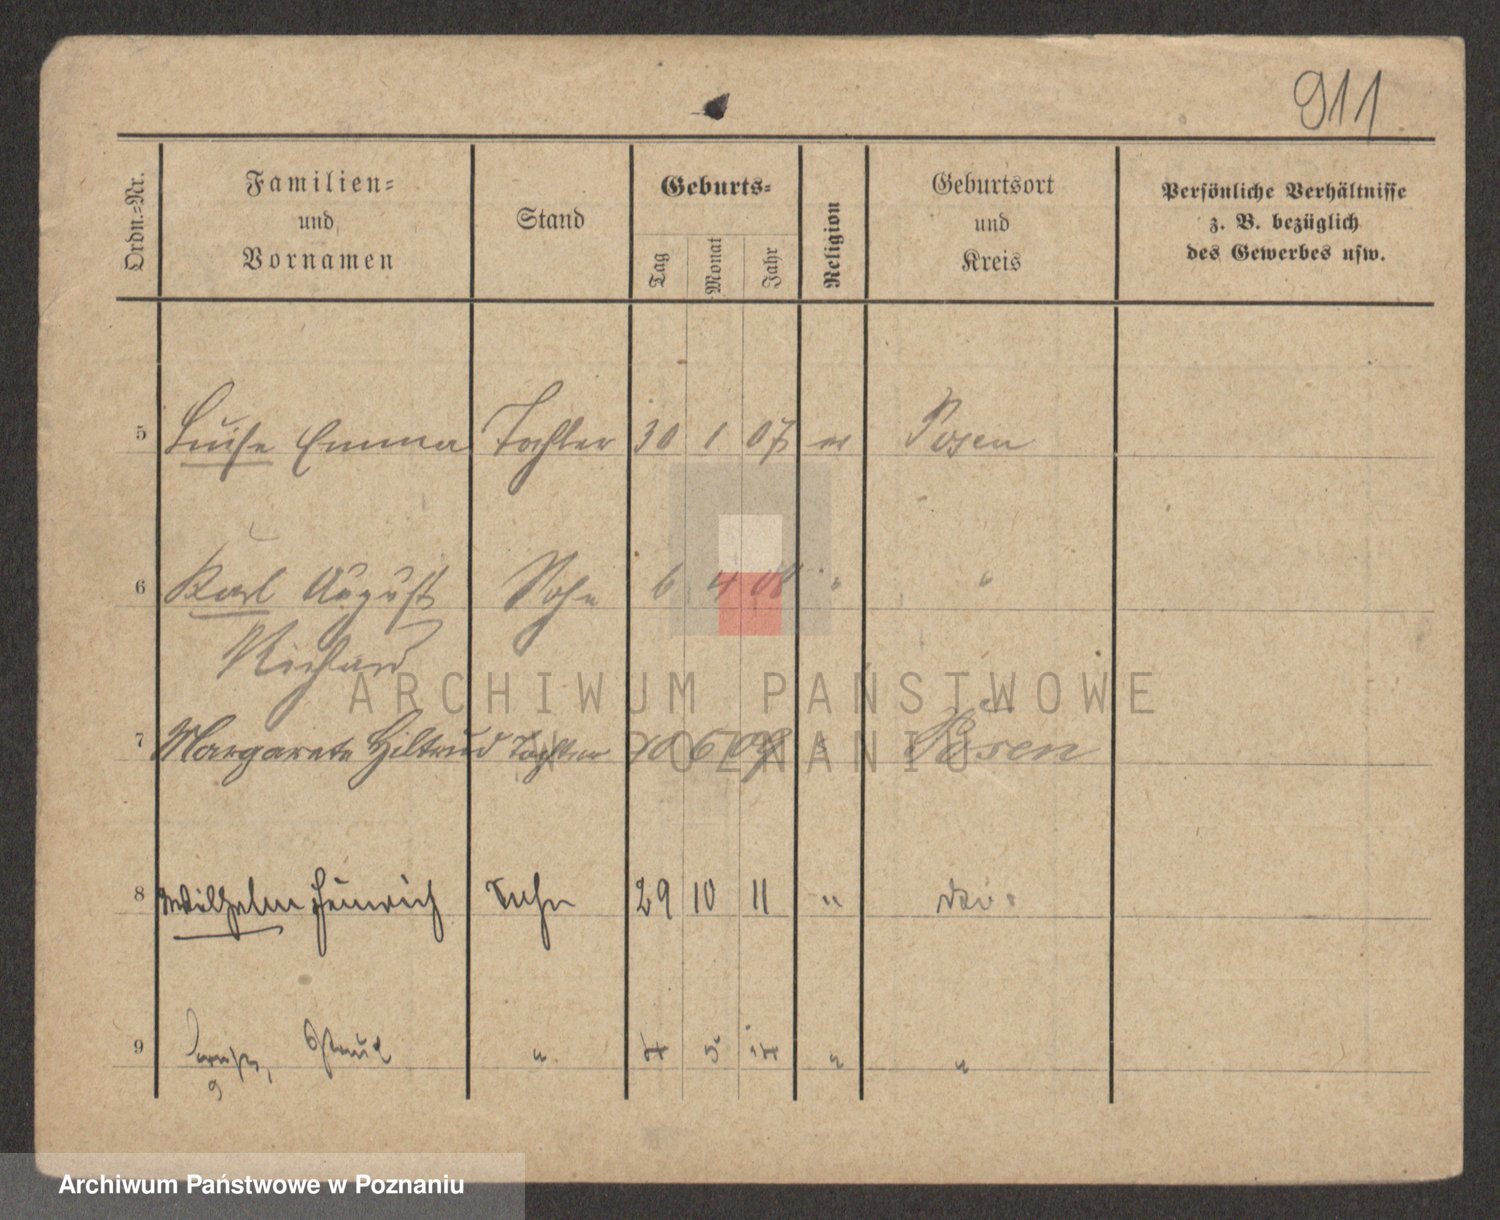 911
Ordn.-Nr.
Familien-
und
Vornamen
Stand
Geburts-
Tag
Monat
Jahr
Religion
Geburtsort
und
Kreis
Persönliche Verhältnisse
z. B. bezüglich
des Gewerbes usw.
5 Luise Emma Tochter 30 1 07 ev Posen
6 Karl August Sohn 6 4 08 " "
Richard
7 Margarete Hiltrud Tochter 10 6 09 Posen
8 Wilhelm Heinrich Sohn 29 10 11 "
9 " 4 5 14 " "
ARCHIWUM PAŃSTWOWE
W POZNANIU
Archiwum Państwowe w Poznaniu